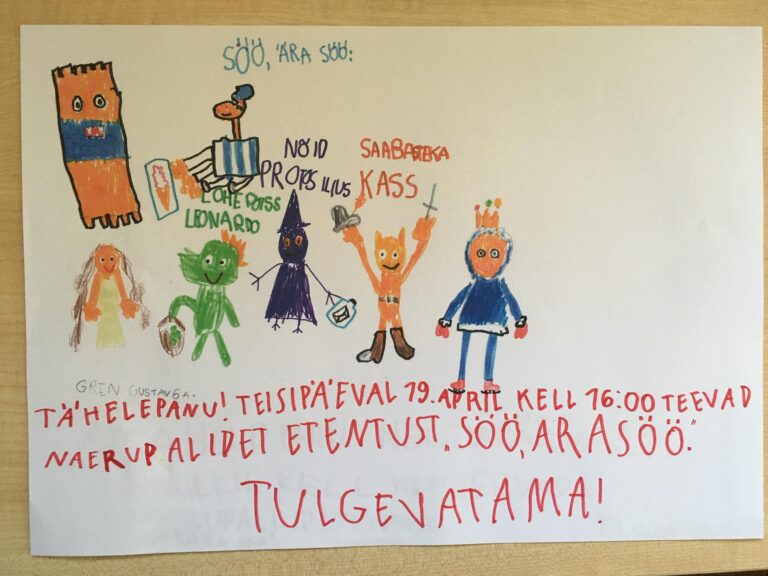 SÖÖ, ÄRA SÖÖ:
NÕID
PROTOSILIUS
SAABASTEKA
KASS
LOHEPOISS
LEONARDO
GREN GUSTAV 6 A.
TÄHELEPANU! TEISIPÄEVAL 19. APRIL KELL 16:00 TEEVAD
NAERUPALIDET ETENTUST „SÖÖ, ARASÖÖ."
TULGEVATAMA!